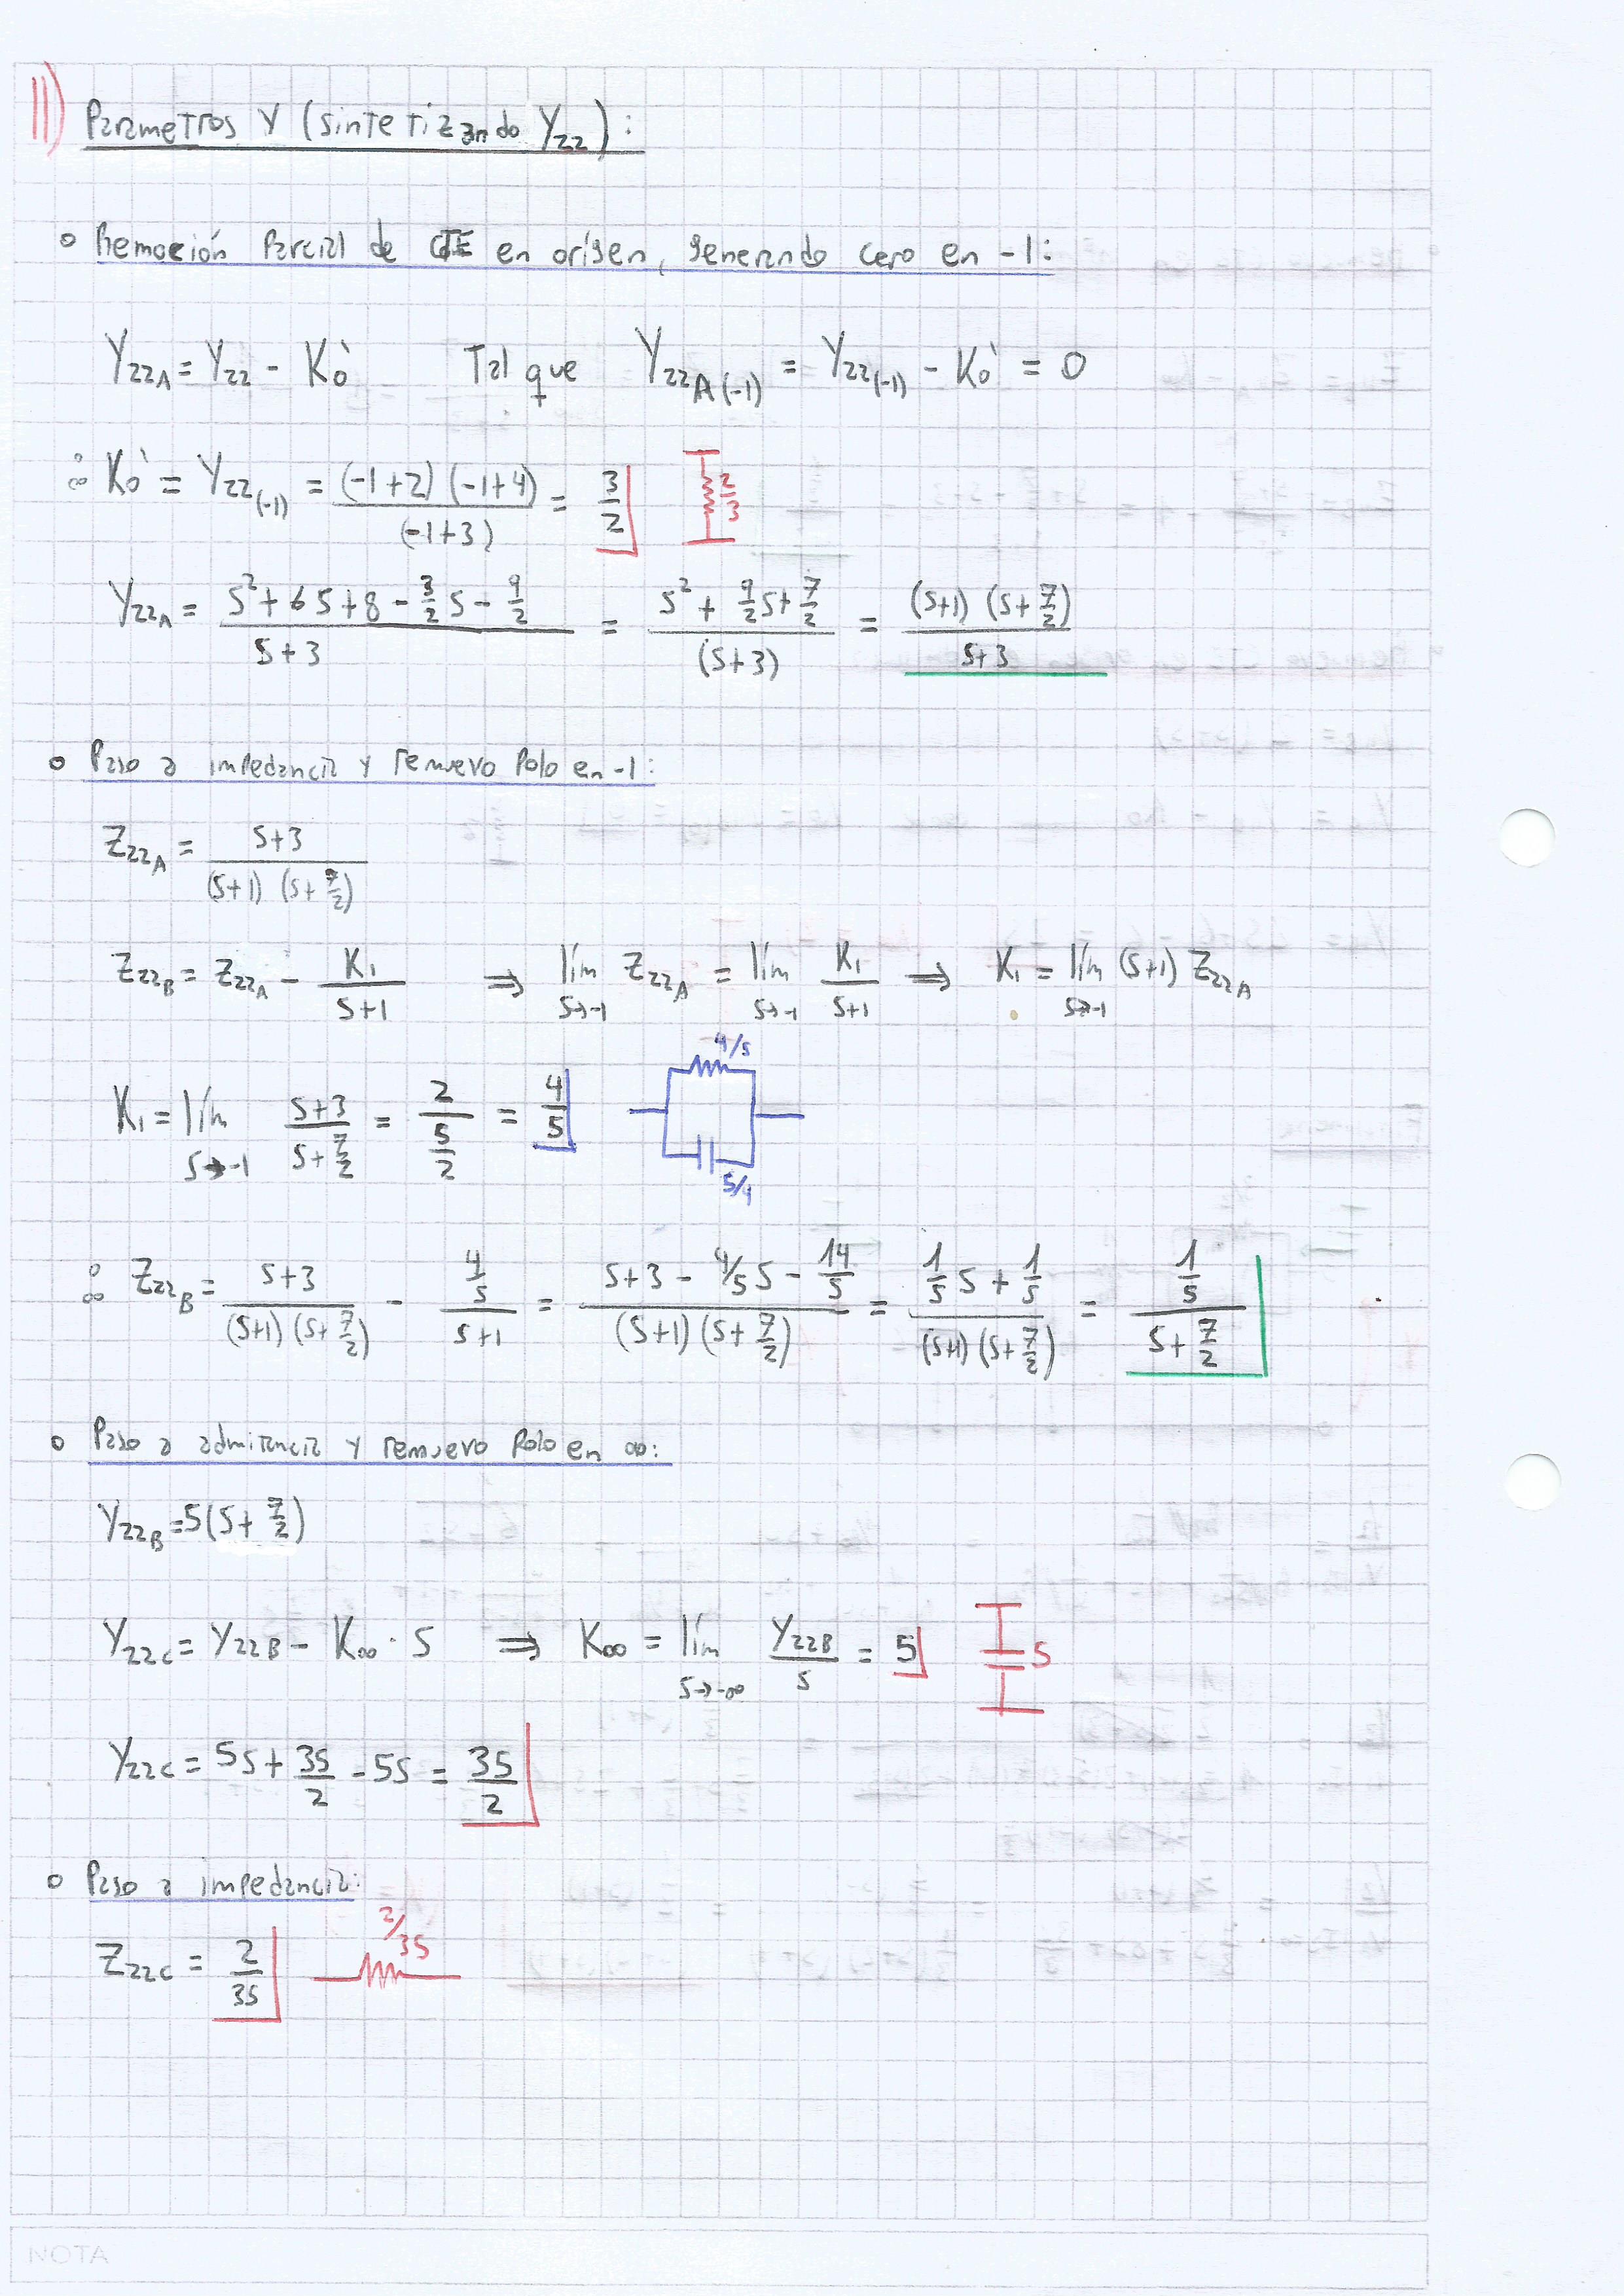 II) Parametros Y (sintetizando Y22):
o Remoción Parcial de CTE en orígen, generando cero en -1:
Y22A = Y22 - K0' Tal que Y22A(-1) = Y22(-1) - K0' = 0
∴ K0' = Y22(-1) = (-1+2)(-1+4)/(-1+3) = 3/2 2/3
Y22A = (S²+6S+8-3/2 S-9/2)/(S+3) = (S²+9/2 S+7/2)/(S+3) = (S+1)(S+7/2)/(S+3)
o Paso a impedancia y remuevo Polo en -1:
Z22A = (S+3)/((S+1)(S+7/2))
Z22B = Z22A - K1/(S+1) ⇒ lím S→-1 Z22A = lím S→-1 K1/(S+1) ⇒ K1 = lím S→-1 (S+1) Z22A
4/5
K1 = lím S→-1 (S+3)/(S+7/2) = 2/(5/2) = 4/5
5/4
∴ Z22B = (S+3)/((S+1)(S+7/2)) - (4/5)/(S+1) = (S+3-4/5 S-14/5)/((S+1)(S+7/2)) = (1/5 S+1/5)/((S+1)(S+7/2)) = (1/5)/(S+7/2)
o Paso a admitancia y remuevo Polo en ∞:
Y22B = 5(S+7/2)
Y22C = Y22B - K∞·S ⇒ K∞ = lím S→∞ Y22B/S = 5 5
Y22C = 5S + 35/2 - 5S = 35/2
o Paso a impedancia:
Z22C = 2/35 2/35
NOTA